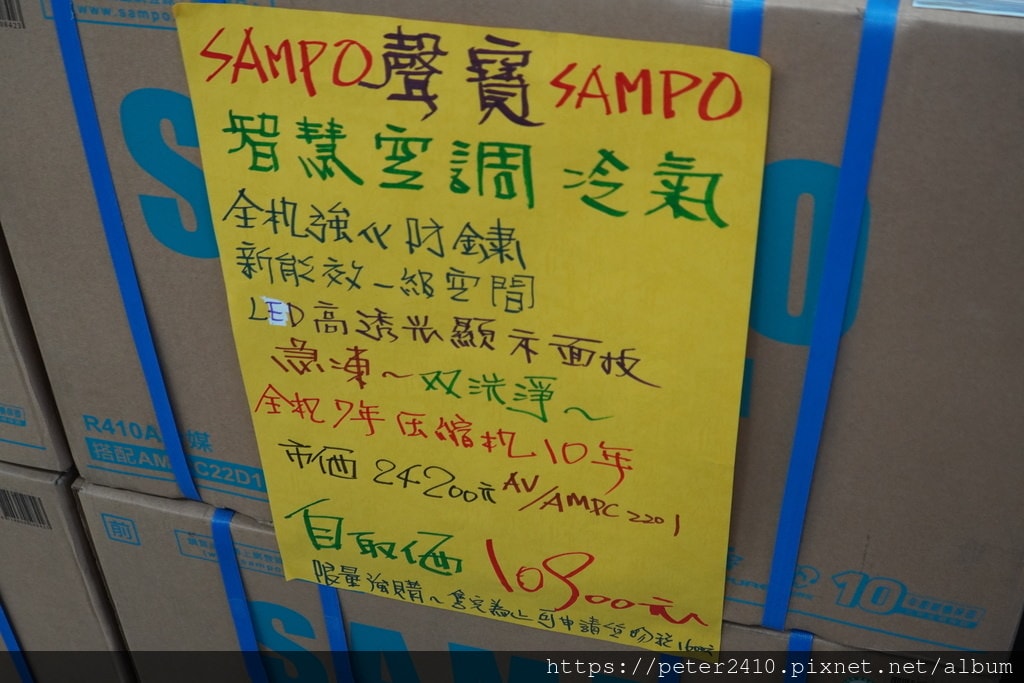 www.sampo
SAMPO聲寶SAMPO
智慧空調 冷氣
全机強化防鏽
新能效一級空間
LED高透光顯示面板
急凍~双洗淨~
全机7年 压縮机10年
市価 24200元 AV/AMPC2201
自取価 10900元
限量強購~售完為止 可申請貨物稅1600元
R410A 媒
搭配AM C22D1
前
10
SAM
https://peter2410.pixnet.net/album